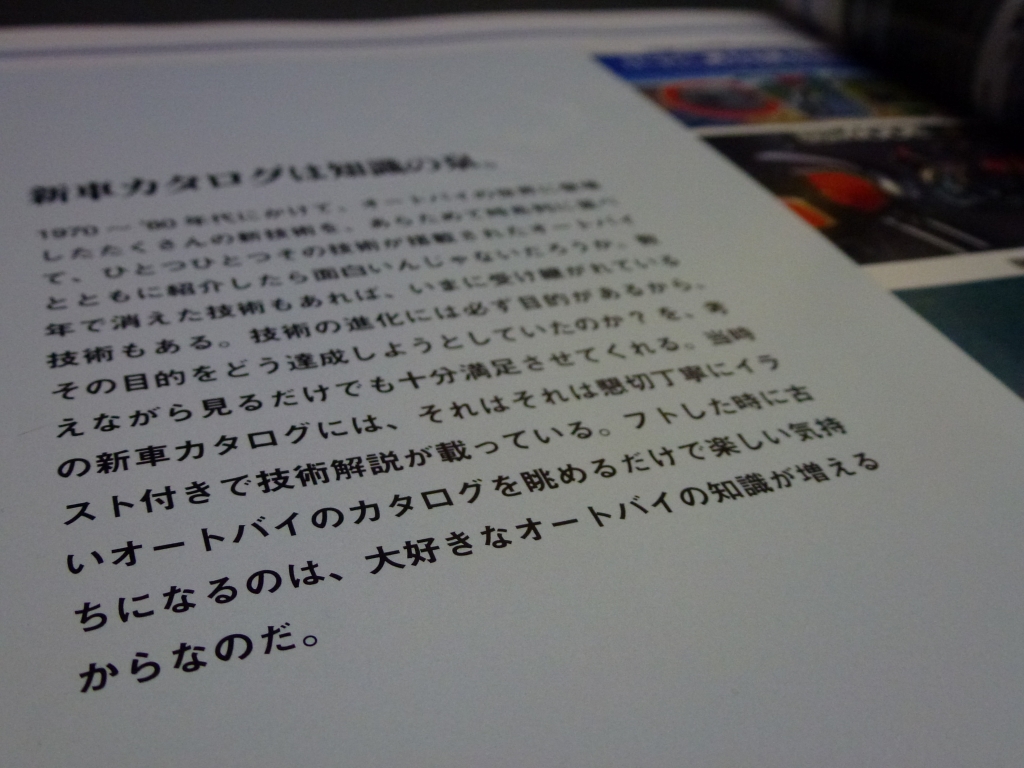 新車カタログは知識の泉。
1970〜'80年代にかけて、オートバイの世界に登場
したたくさんの新技術を、あらためて時系列に並べ
て、ひとつひとつその技術が搭載されたオートバイ
とともに紹介したら面白いんじゃないだろうか。数
年で消えた技術もあれば、いまに受け継がれている
技術もある。技術の進化には必ず目的があるから、
その目的をどう達成しようとしていたのか？を、考
えながら見るだけでも十分満足させてくれる。当時
の新車カタログには、それはそれは懇切丁寧にイラ
スト付きで技術解説が載っている。フトした時に古
いオートバイのカタログを眺めるだけで楽しい気持
ちになるのは、大好きなオートバイの知識が増える
からなのだ。